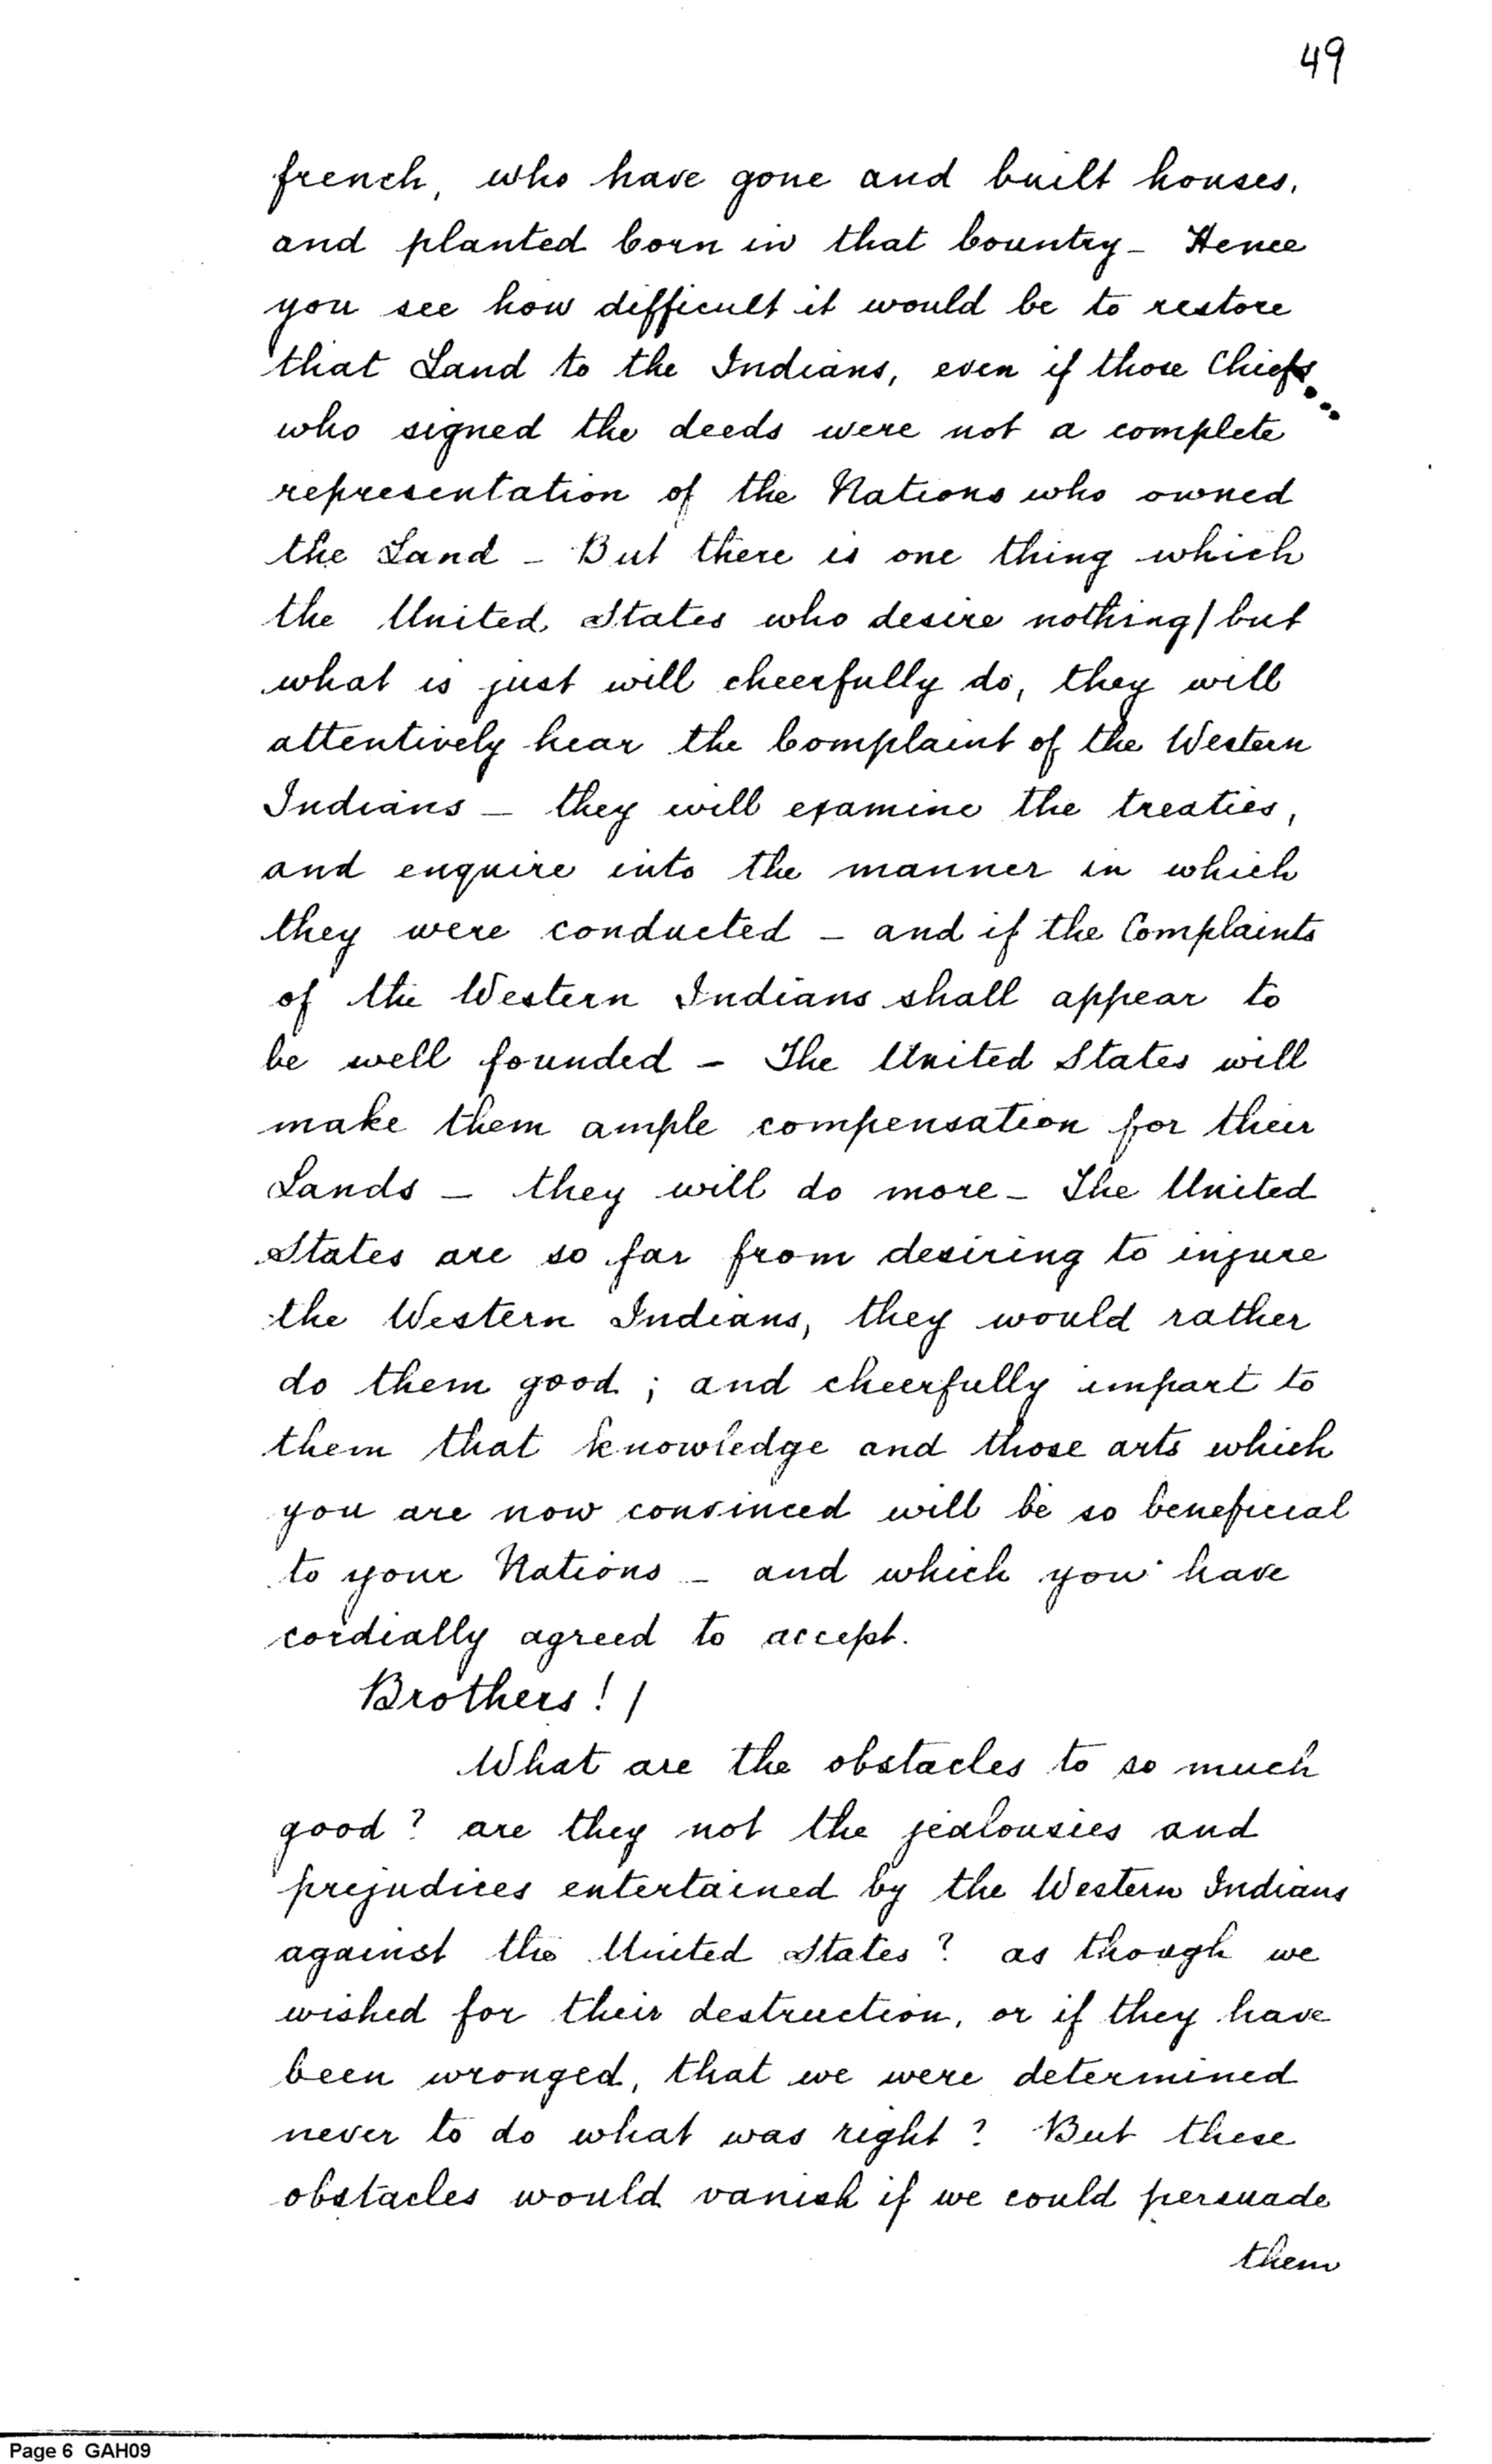 49
french, who have gone and built houses,
and planted Corn in that Country - Hence
you see how difficult it would be to restore
that Land to the Indians, even if those Chiefs
who signed the deeds were not a complete
representation of the Nations who owned
the Land - But there is one thing which
the United States who desire nothing/but
what is just will cheerfully do, they will
attentively hear the Complaint of the Western
Indians - they will examine the treaties,
and enquire into the manner in which
they were conducted - and if the Complaints
of the Western Indians shall appear to
be well founded - The United States will
make them ample compensation for their
Lands - they will do more - The United
States are so far from desiring to injure
the Western Indians, they would rather
do them good; and cheerfully impart to
them that knowledge and those arts which
you are now convinced will be so beneficial
to your Nations - and which you have
cordially agreed to accept.
Brothers! /
What are the obstacles to so much
good? are they not the jealousies and
prejudices entertained by the Western Indians
against the United States? as though we
wished for their destruction, or if they have
been wronged, that we were determined
never to do what was right? But these
obstacles would vanish if we could persuade
them
Page 6 GAH09